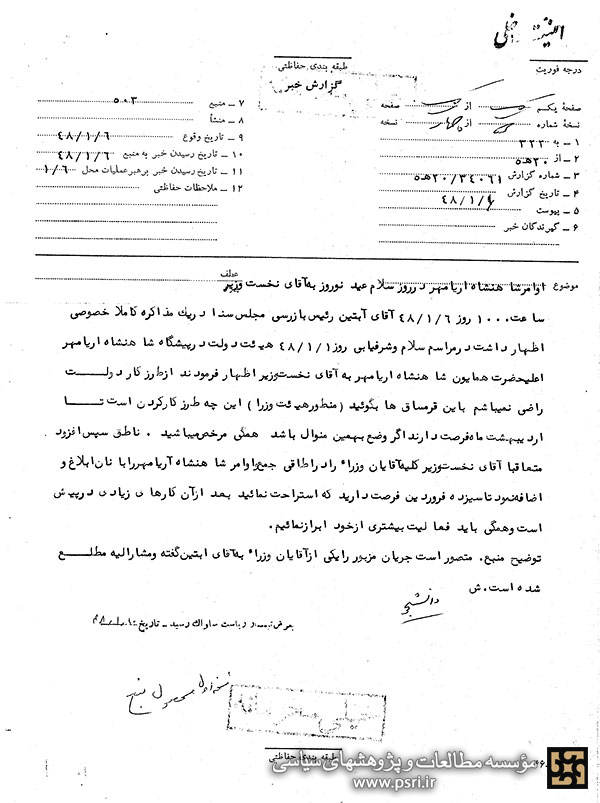 طبقه بندی حفاظتی
درجه فوریت
گزارش خبر
صفحه یکم از صفحه
نسخه شماره از چهار نسخه
۱ ـ به ۳۲۲
۲ ـ از ۲۰ه۵
۳ ـ شماره گزارش ۲۰/۳۴۰۶۱ه۵
۴ ـ تاریخ گزارش ۴۸/۱/۶
۵ ـ پیوست
۶ ـ گیرندگان خبر
۷ ـ منبع ۵۰۳
۸ ـ منشأ
۹ ـ تاریخ وقوع ۴۸/۱/۶
۱۰ ـ تاریخ رسیدن خبر به منبع ۴۸/۱/۶
۱۱ ـ تاریخ رسیدن خبر برهبر عملیات محل ۱/۶
۱۲ ـ ملاحظات حفاظتی
عطف
موضوع اوامر شاهنشاه اریامهر در روز سلام عید نوروز به آقای نخست وزیر
ساعت ۱۰۰۰ روز ۴۸/۱/۶ آقای آبتین رئیس بازرسی مجلس سنا در یك مذاکره کاملا خصوصی
اظهار داشت در مراسم سلام و شرفیابی روز ۴۸/۱/۱ هیئت دولت در پیشگاه شاهنشاه اریامهر
اعلیحضرت همایون شاهنشاه اریامهر به آقای نخست وزیر اظهار فرمودند از طرز کار دولت
راضی نمیباشم باین قرمساق ها بگوئید (منظور هیئت وزرا) این چه طرز کار کردن است تا
اردیبهشت ماه فرصت دارند اگر وضع بهمین منوال باشد همگی مرخص میباشید . ناطق سپس افزود
متعاقبا آقای نخست وزیر کلیه آقایان وزراء را در اطاقی جمع و اوامر شاهنشاه آریامهر را بانان ابلاغ و
اضافه نمود تا سیزده فروردین فرصت دارید که استراحت نمائید بعد از آن کارهای زیادی در پیش
است و همگی باید فعالیت بیشتری از خود ابراز نمائیم.
توضیح منبع. متصور است جریان مزبور را یکی از آقایان وزراء به آقای ابتین گفته و مشارالیه مطلع
شده است. ش
دانشجو
بعرض تیمسار ریاست ساواك رسید ـ تاریخ
خیلی محرمانه
طبقه بندی حفاظتی
مؤسسه مطالعات و پژوهشهای سیاسی
www.psri.ir